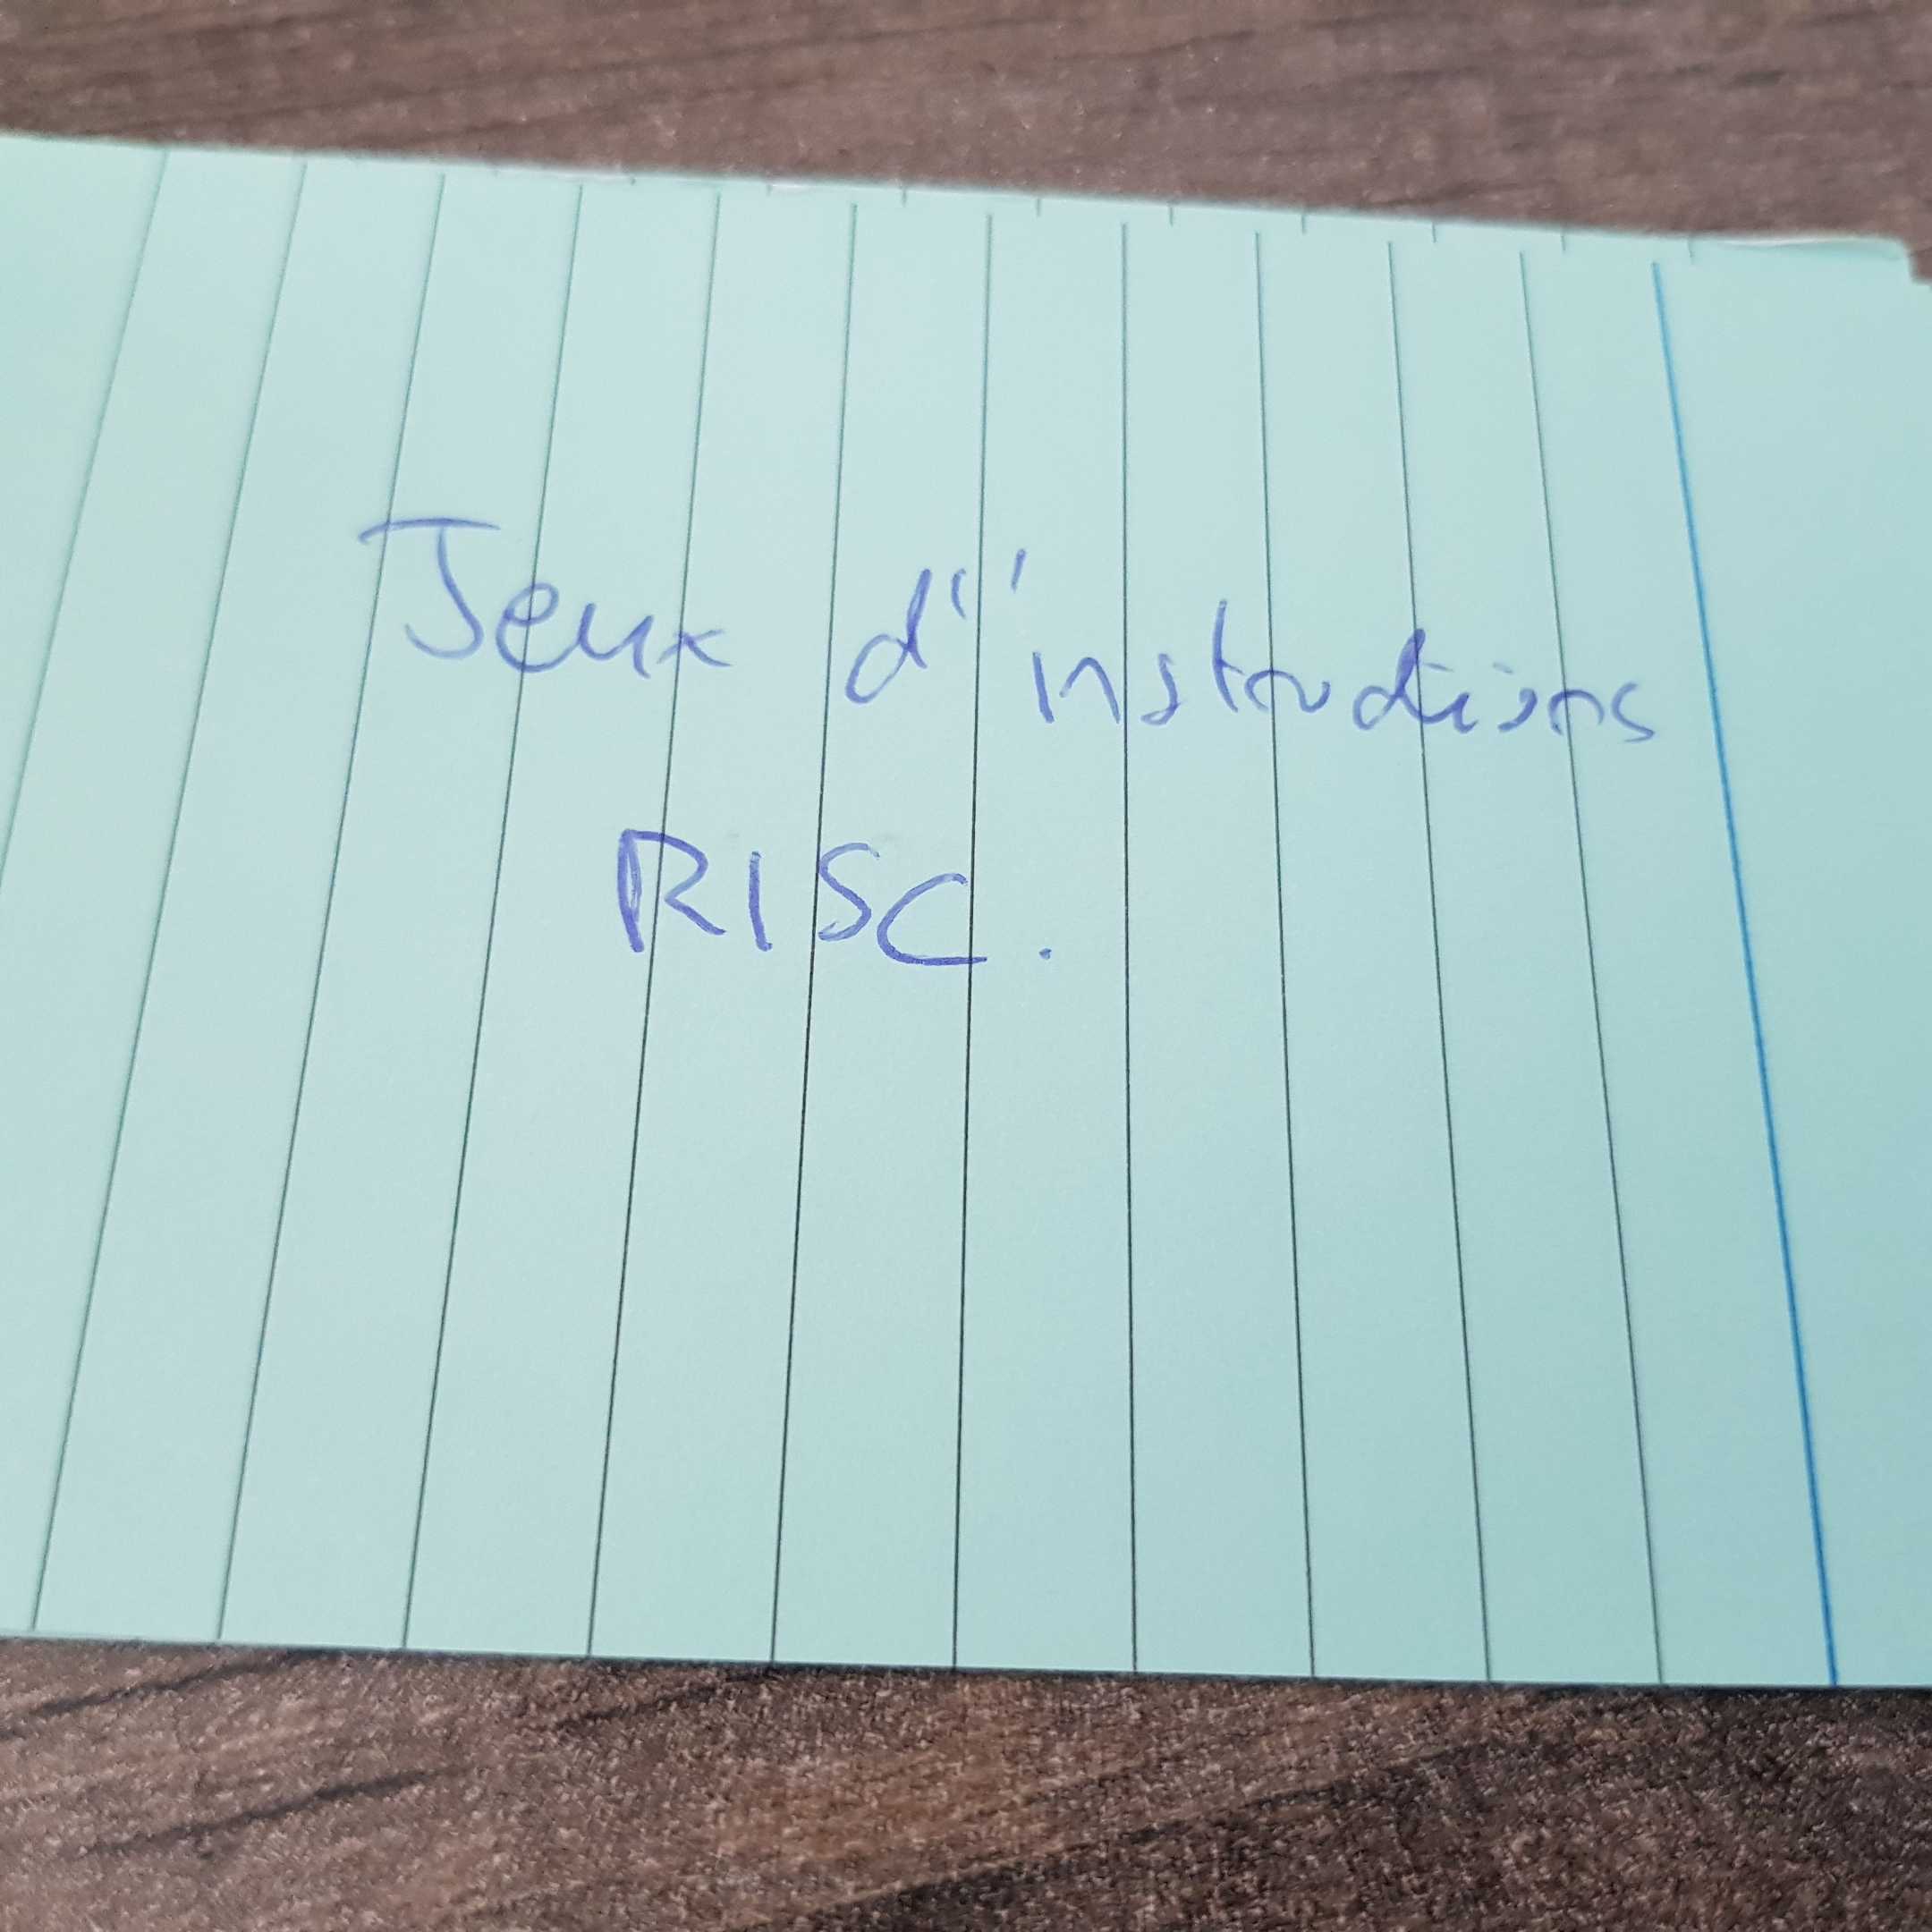 Jeux d'instructions
RISC.